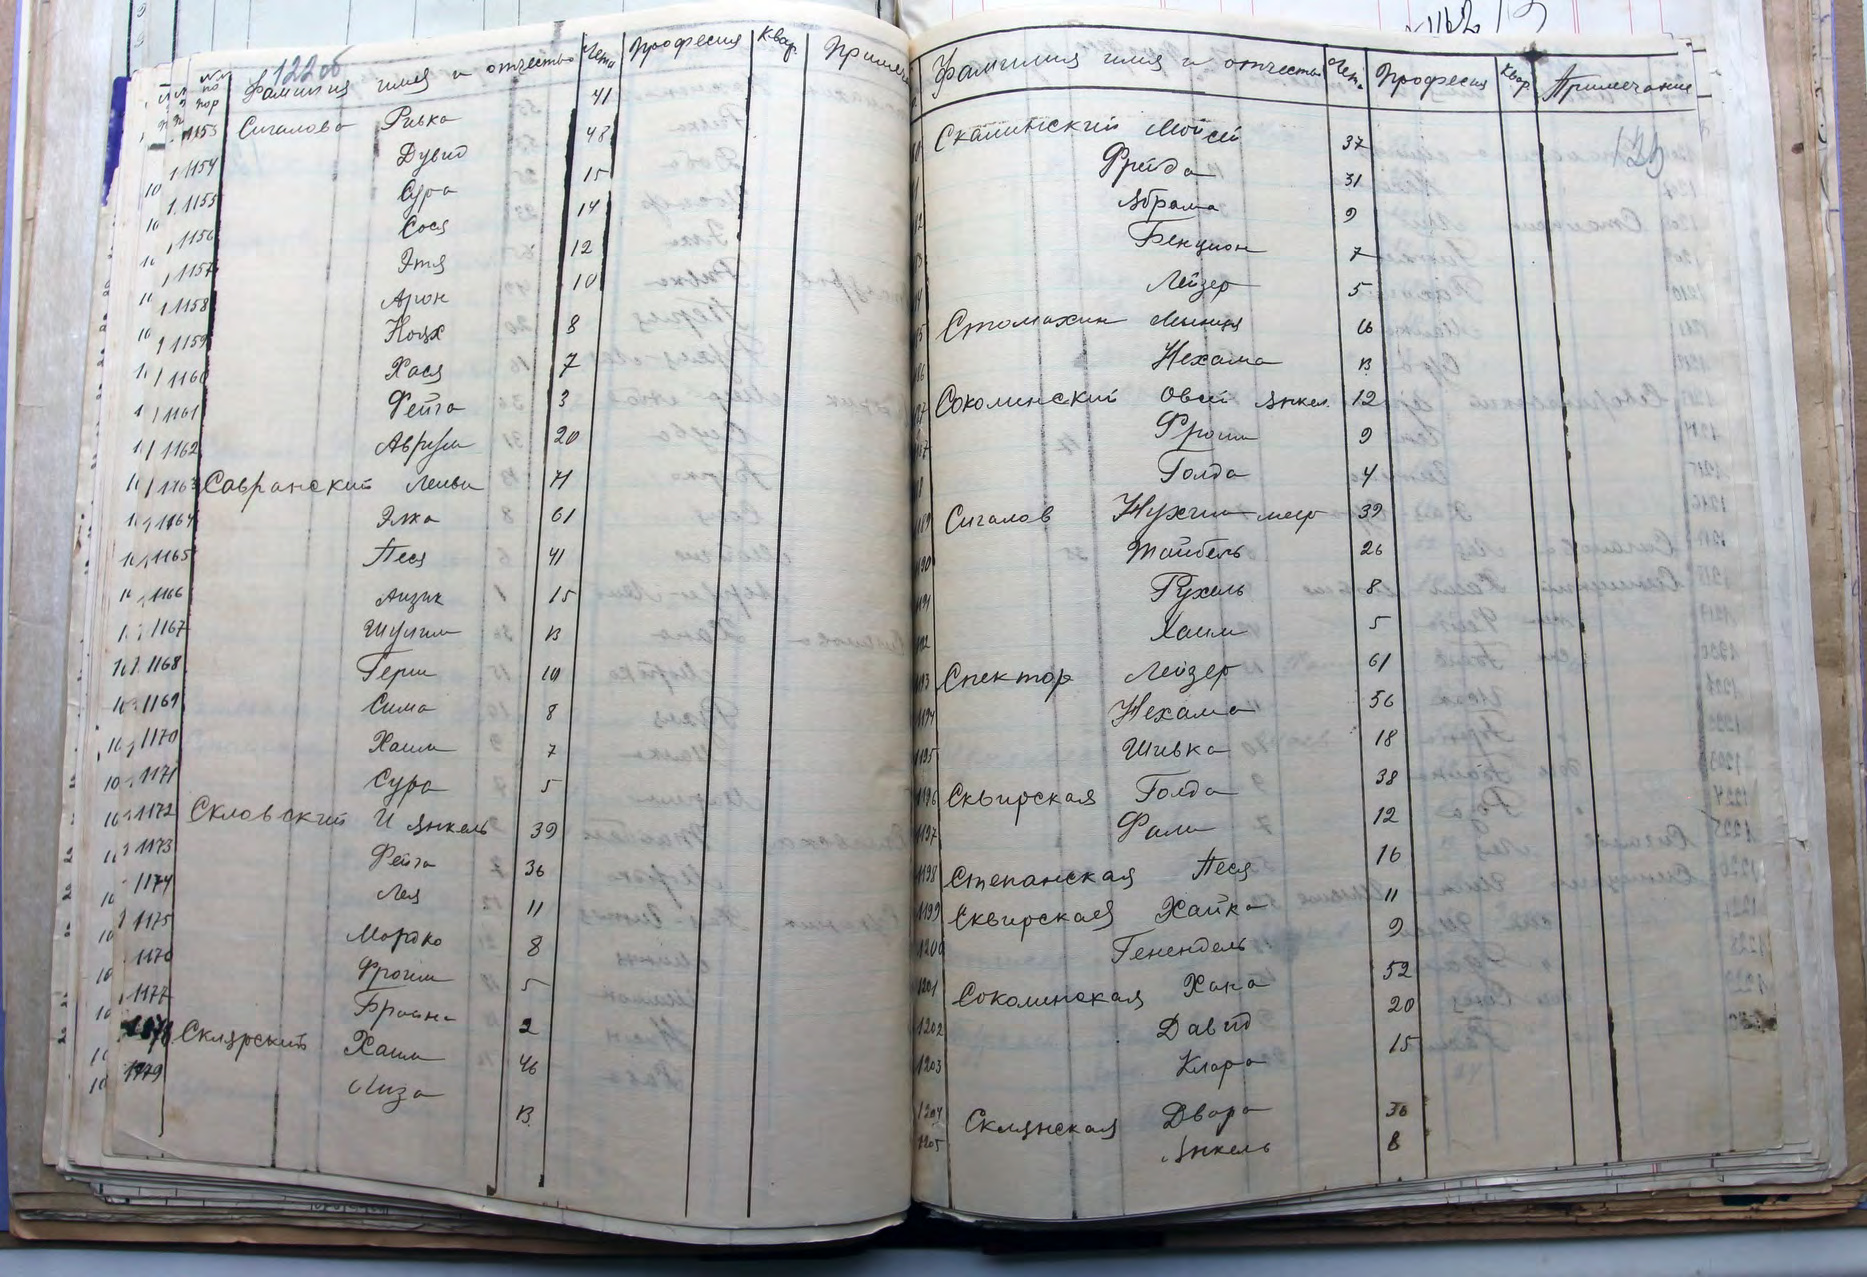 122об
№№ по пор Фамилия имя и отчество Лета Професия Квар. Примеч
1153 Сигалова Ривка 41
1154 Дувид 48
1155 Сура 15
1156 Сося 14
1157 Этя 12
1158 Арон 10
1159 Ноях 8
1160 Хася 7
1161 Фейга 3
1162 Аврум 20
1163 Савранский Лейви 71
1164 Элка 61
1165 Песя 41
1166 Аизик 15
1167 Шулим 13
1168 Герш 10
1169 Сима 8
1170 Хаим 7
1171 Сура 5
1172 Скловский И Янкель 39
1173 Фейга 36
1174 Лея 11
1175 Мордко 8
1176 Фроим 5
1177 Броня 2
1178 Склярский Хаим 46
1179 Лиза 13
Фамилия имя и отчество Лет. Професия Квар Примечание
123
Скалитский Мойсей 37
Фрейда 31
Абрам 9
Бенцион 7
Лейзер 5
Стомахин 16
Нехама 13
Соколинский Овсей Янкел 12
Фроим 9
Голда 4
Сигалов Нухим меер 39
Тайбель 26
Рухель 8
Хаим 5
1193 Спектор Лейзер 61
1194 Нехама 56
1195 Шивка 18
1196 Сквирская Голда 38
1197 Фаля 12
1198 Степанская Песя 16
1199 Сквирская Хайка 11
1200 Генендель 9
1201 Соколинская Хана 52
1202 Давид 20
1203 Клара 15
1204 Склянская Двора 36
1205 Янкель 8